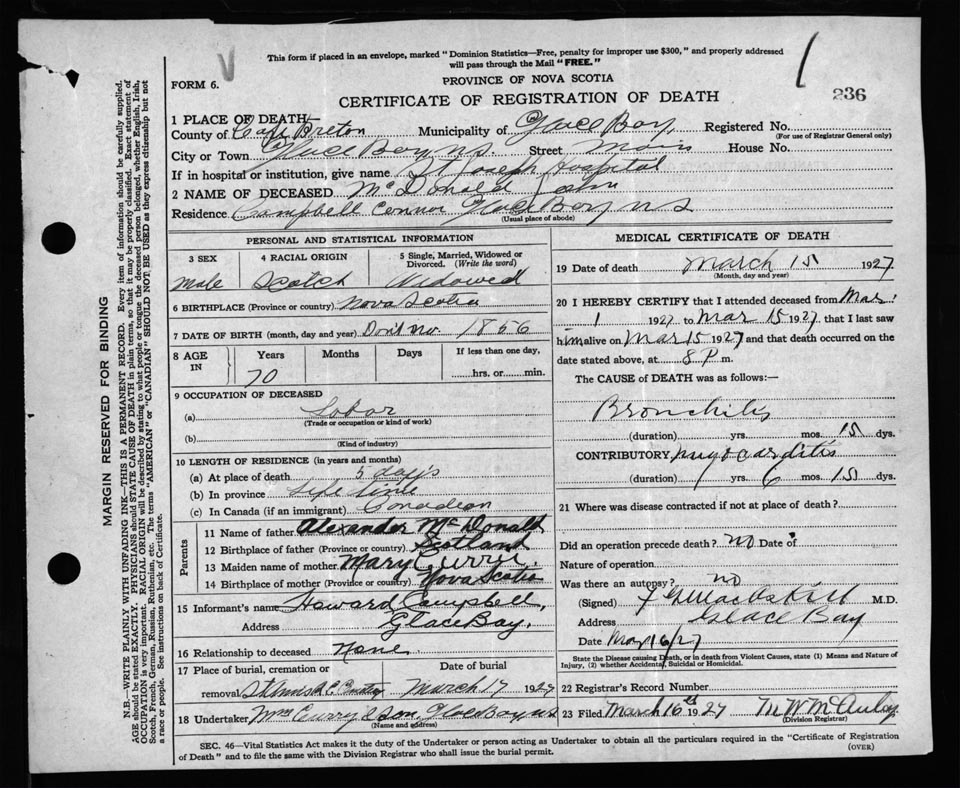 This form if placed in an envelope, marked "Dominion Statistics—Free, penalty for improper use $300," and properly addressed
will pass through the Mail "FREE."
FORM 6.
PROVINCE OF NOVA SCOTIA
236
CERTIFICATE OF REGISTRATION OF DEATH
1 PLACE OF DEATH—
County of Cape Breton Municipality of Glace Bay, Registered No.
(For use of Registrar General only)
City or Town Glace Bay N.S. Street Main House No.
If in hospital or institution, give name St Joseph Hospital
2 NAME OF DECEASED McDonald John
Residence Campbell Connor Glace Bay N S
(Usual place of abode)
PERSONAL AND STATISTICAL INFORMATION
3 SEX 4 RACIAL ORIGIN 5 Single, Married, Widowed or Divorced. (Write the word)
Male Scotch Widowed
6 BIRTHPLACE (Province or country) Nova Scotia
7 DATE OF BIRTH (month, day and year) 1856
8 AGE IN Years Months Days If less than one day,
70 hrs. or min.
9 OCCUPATION OF DECEASED
(a) Labor
(Trade or occupation or kind of work)
(b)
(Kind of industry)
10 LENGTH OF RESIDENCE (in years and months)
(a) At place of death 5 days
(b) In province Life time
(c) In Canada (if an immigrant) Canadian
Parents
11 Name of father Alexander McDonald
12 Birthplace of father (Province or country) Scotland
13 Maiden name of mother Mary Curry.
14 Birthplace of mother (Province or country) Nova Scotia
15 Informant's name Howard Campbell,
Address Glace Bay.
16 Relationship to deceased None
17 Place of burial, cremation or Date of burial
removal March 17 1927
18 Undertaker Wm Curry & Son. Glace Bay NS
(Name and address)
MEDICAL CERTIFICATE OF DEATH
19 Date of death March 15 1927.
(Month, day and year)
20 I HEREBY CERTIFY that I attended deceased from Mar.
1 1927 to Mar 15 1927, that I last saw
him alive on Mar 15 1927 and that death occurred on the
date stated above, at 8 P m.
The CAUSE of DEATH was as follows:
Bronchitis
(duration) yrs. mos. 15 dys.
CONTRIBUTORY Myocarditis
(duration) yrs. 6 mos. 15 dys.
21 Where was disease contracted if not at place of death?
Did an operation precede death? no Date of
Nature of operation
Was there an autopsy? no
(Signed) M.D.
Address Glace Bay
Date Mar 16/27
State the Disease causing Death, or in death from Violent Causes, state (1) Means and Nature of
Injury, (2) whether Accidental, Suicidal or Homicidal.
22 Registrar's Record Number
23 Filed March 16th 1927 M W McAulay
(Division Registrar)
SEC. 46—Vital Statistics Act makes it the duty of the Undertaker or person acting as Undertaker to obtain all the particulars required in the "Certificate of Registration
of Death" and to file the same with the Division Registrar who shall issue the burial permit.
(OVER)
MARGIN RESERVED FOR BINDING
N.B.—WRITE PLAINLY WITH UNFADING INK—THIS IS A PERMANENT RECORD. Every item of information should be carefully supplied.
AGE should be stated EXACTLY. PHYSICIANS should STATE CAUSE OF DEATH in plain terms, so that it may be properly classified. Exact statement of
OCCUPATION is very important. RACIAL ORIGIN will be described by stating to what people or tongue the deceased person belonged, whether English, Irish,
Scotch, French, German, Russian, Ruthenian, etc. The terms "AMERICAN" or "CANADIAN" SHOULD NOT BE USED as they express citizenship but not
a race or people. See instructions on back of Certificate.